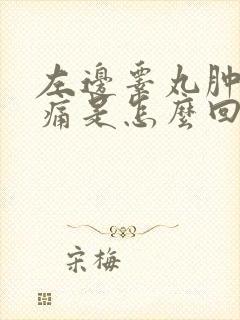 左邊睾丸肿
痛是怎麼回
宋梅